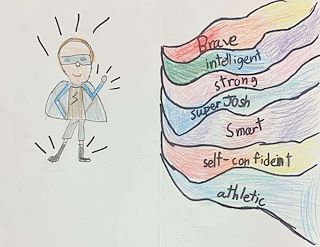 Brave
intelligent
strong
super Josh
Smart
self-confideint
athletic